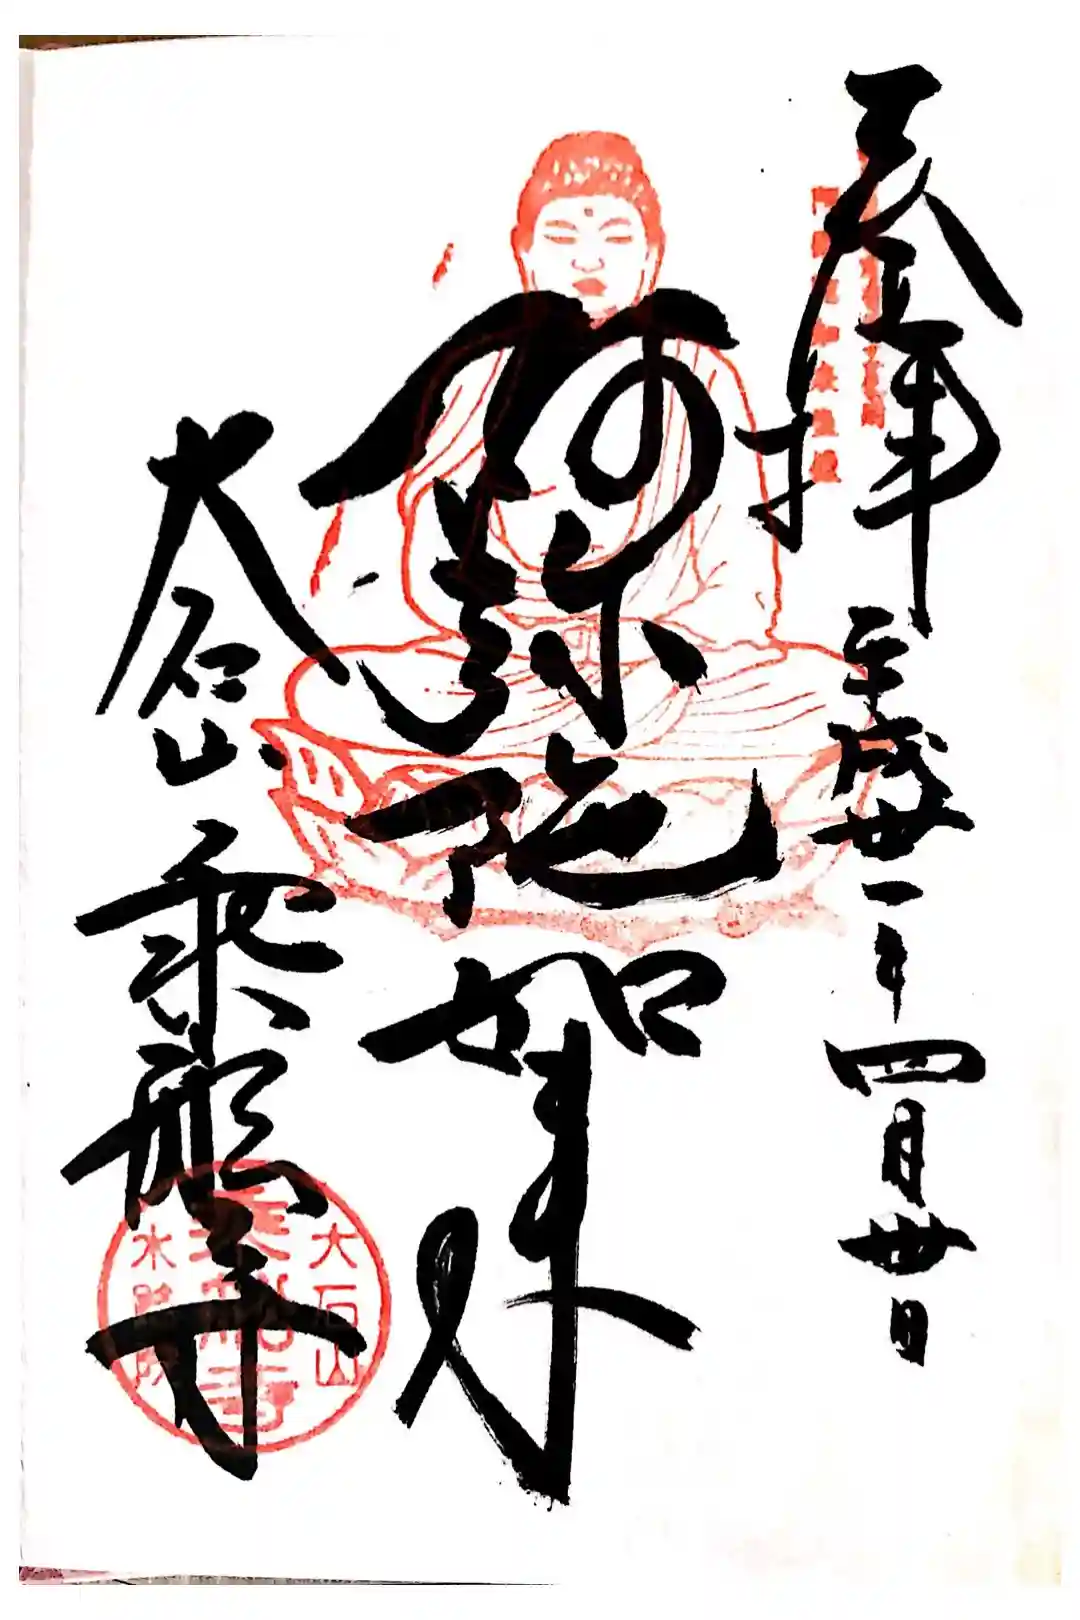 奉拝
平成廿一年四月廿日
阿弥陀如来
大石山
乗船寺
大石山
乗船寺